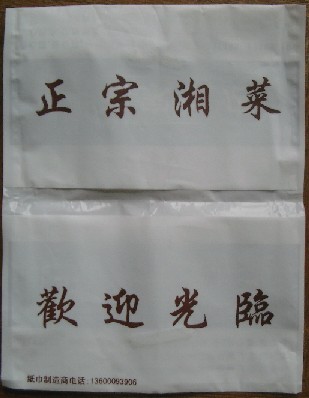 正宗湘菜
歡迎光臨
纸巾制造商电话:13600093906